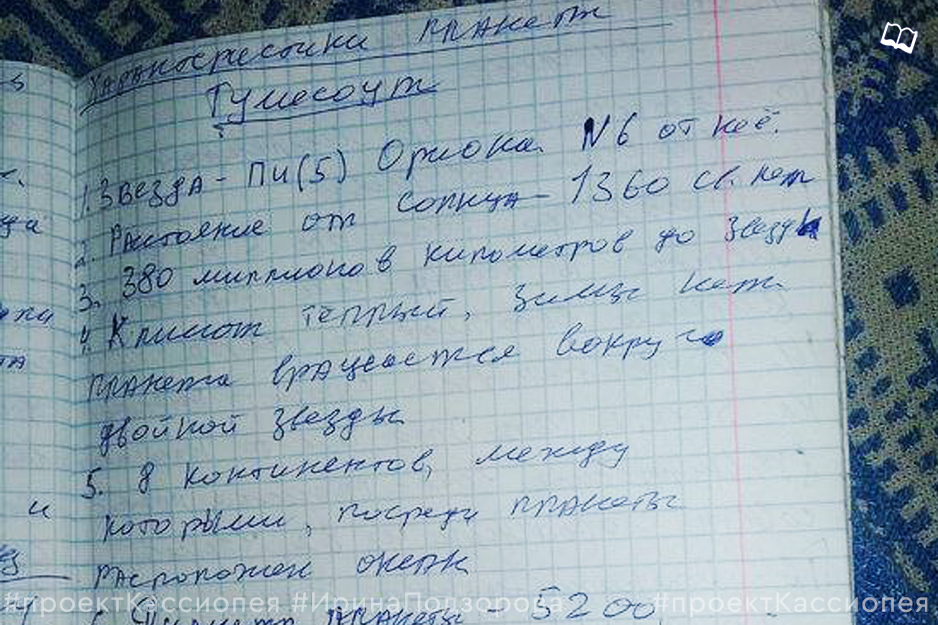 Характеристики планеты
Тумесоут
1. Звезда - Пи(5) Ориона. N6 от неё.
2. Растояние от солнца - 1360 св. лет
3. 380 миллионов километров до звезды
4. Климат теплый, зимы нет.
Планета вращается вокруг
двойной звезды.
5. 8 континентов, между
которыми, посреди планеты
расположен океан
Диаметр планеты 5200
#проектКассиопея #ИринаПодзорова #проектКассиопея